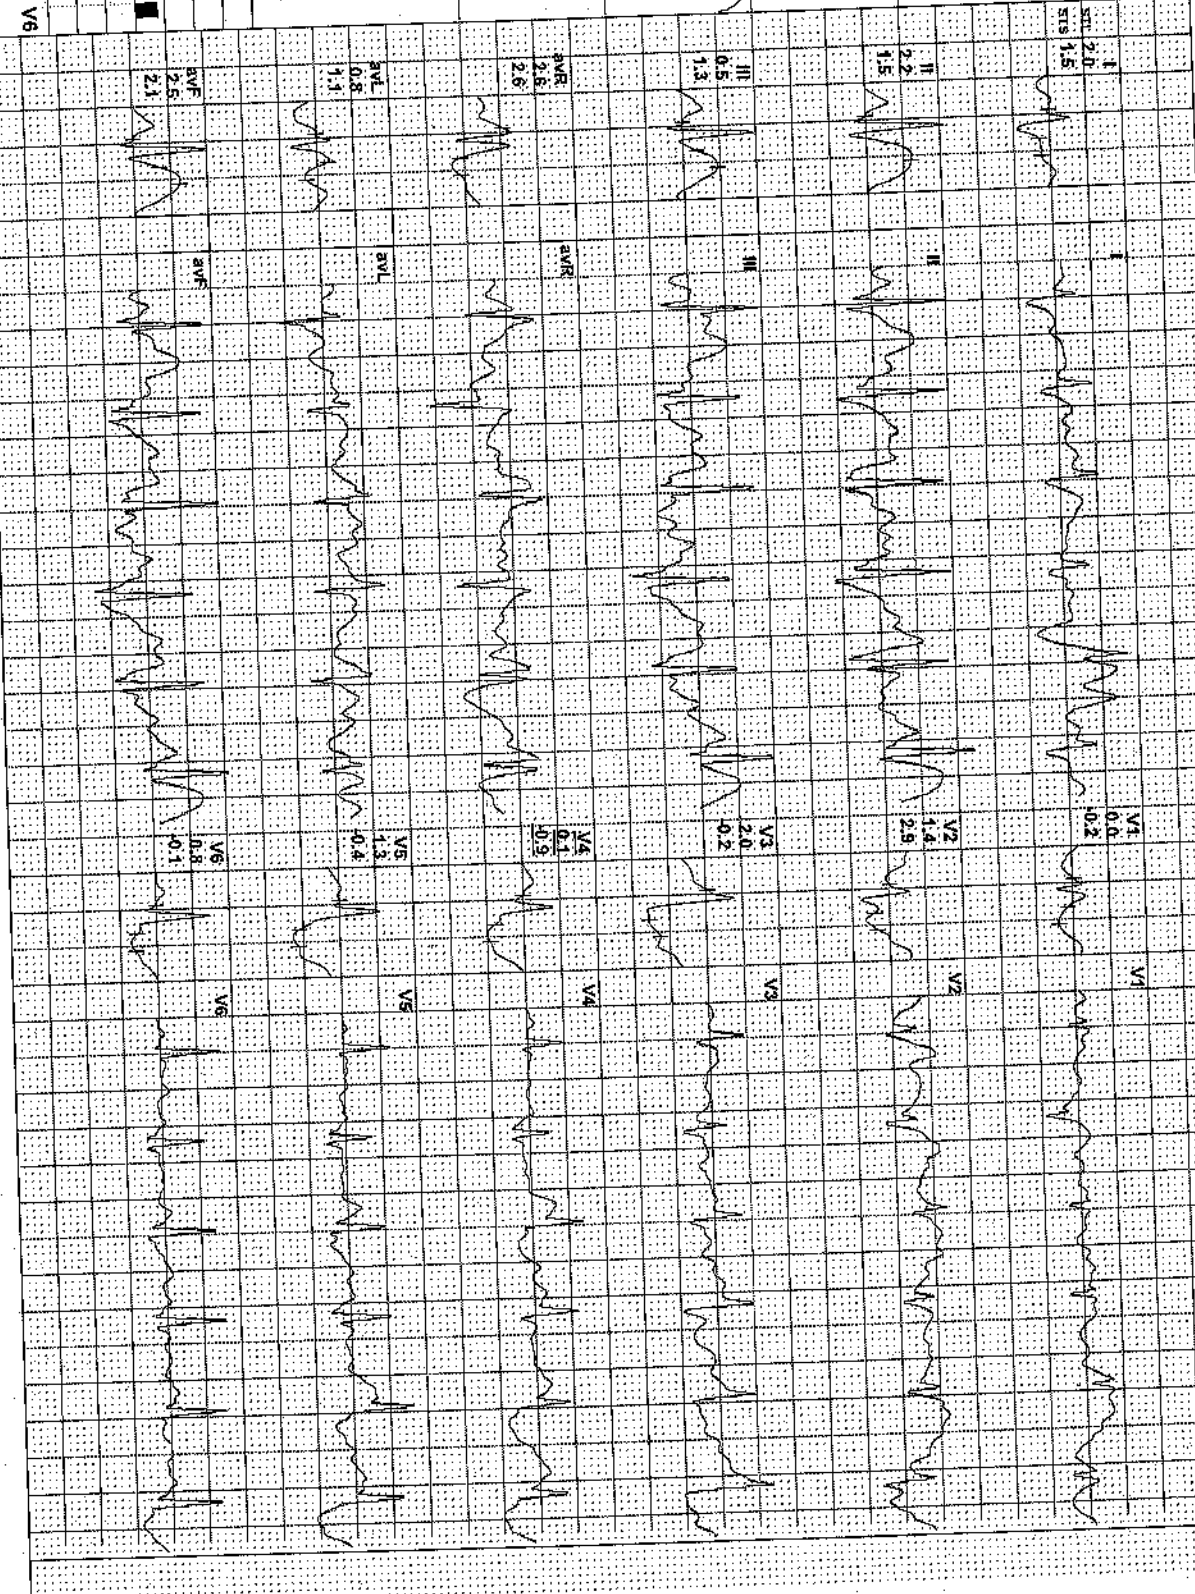 V6
I
STL 2.0
STS 1.5
II
2.2
1.5
III
0.5
1.3
avR
2.6
2.6
avL
0.8
1.1
avF
2.5
2.1
I
II
III
avR
avL
avF
V1
0.0
-0.2
V2
1.4
2.9
V3
2.0
-0.2
V4
0.1
-0.9
V5
1.3
-0.4
V6
0.8
-0.1
V1
V2
V3
V4
V5
V6